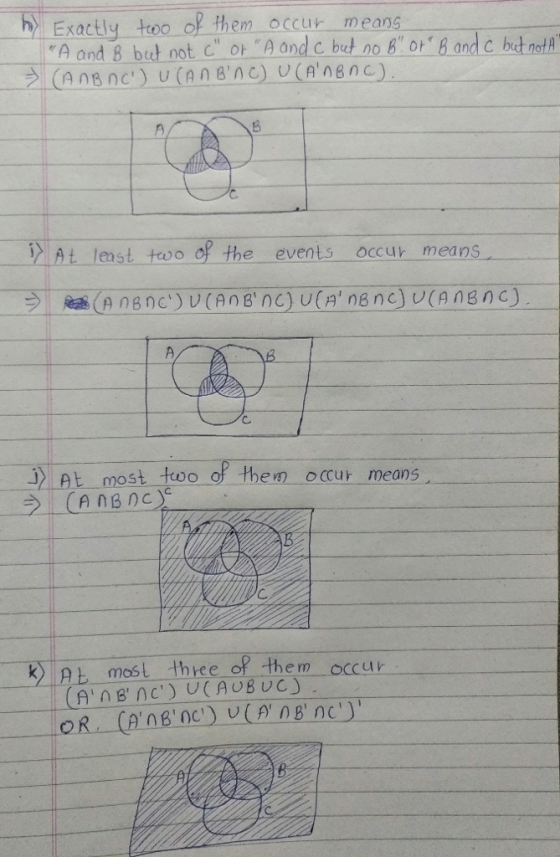 h) Exactly two of them occur means
"A and B but not C" or "A and C but no B" or "B and C but not A"
⇒ (A∩B∩C') ∪ (A∩B'∩C) ∪ (A'∩B∩C).
A B
C
i) At least two of the events occur means,
⇒ (A∩B∩C') ∪ (A∩B'∩C) ∪ (A'∩B∩C) ∪ (A∩B∩C).
A B
C
j) At most two of them occur means,
⇒ (A∩B∩C)ᶜ
A B
C
k) At most three of them occur.
(A'∩B'∩C') ∪ (A∪B∪C).
OR. (A'∩B'∩C') ∪ (A'∩B'∩C')'
A B
C